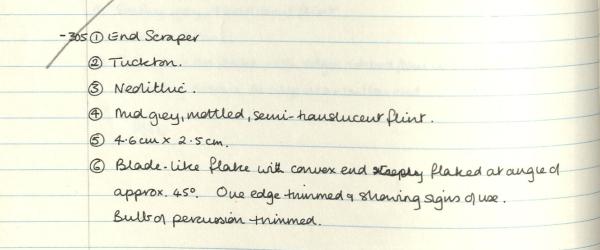 -305 ① End Scraper
② Tuckton.
③ Neolithic.
④ Mid grey, mottled, semi-translucent flint.
⑤ 4.6cm x 2.5cm.
⑥ Blade-like flake with convex end steeply flaked at angle of
approx. 45°. One edge trimmed & showing signs of use.
Bulb of percussion trimmed.